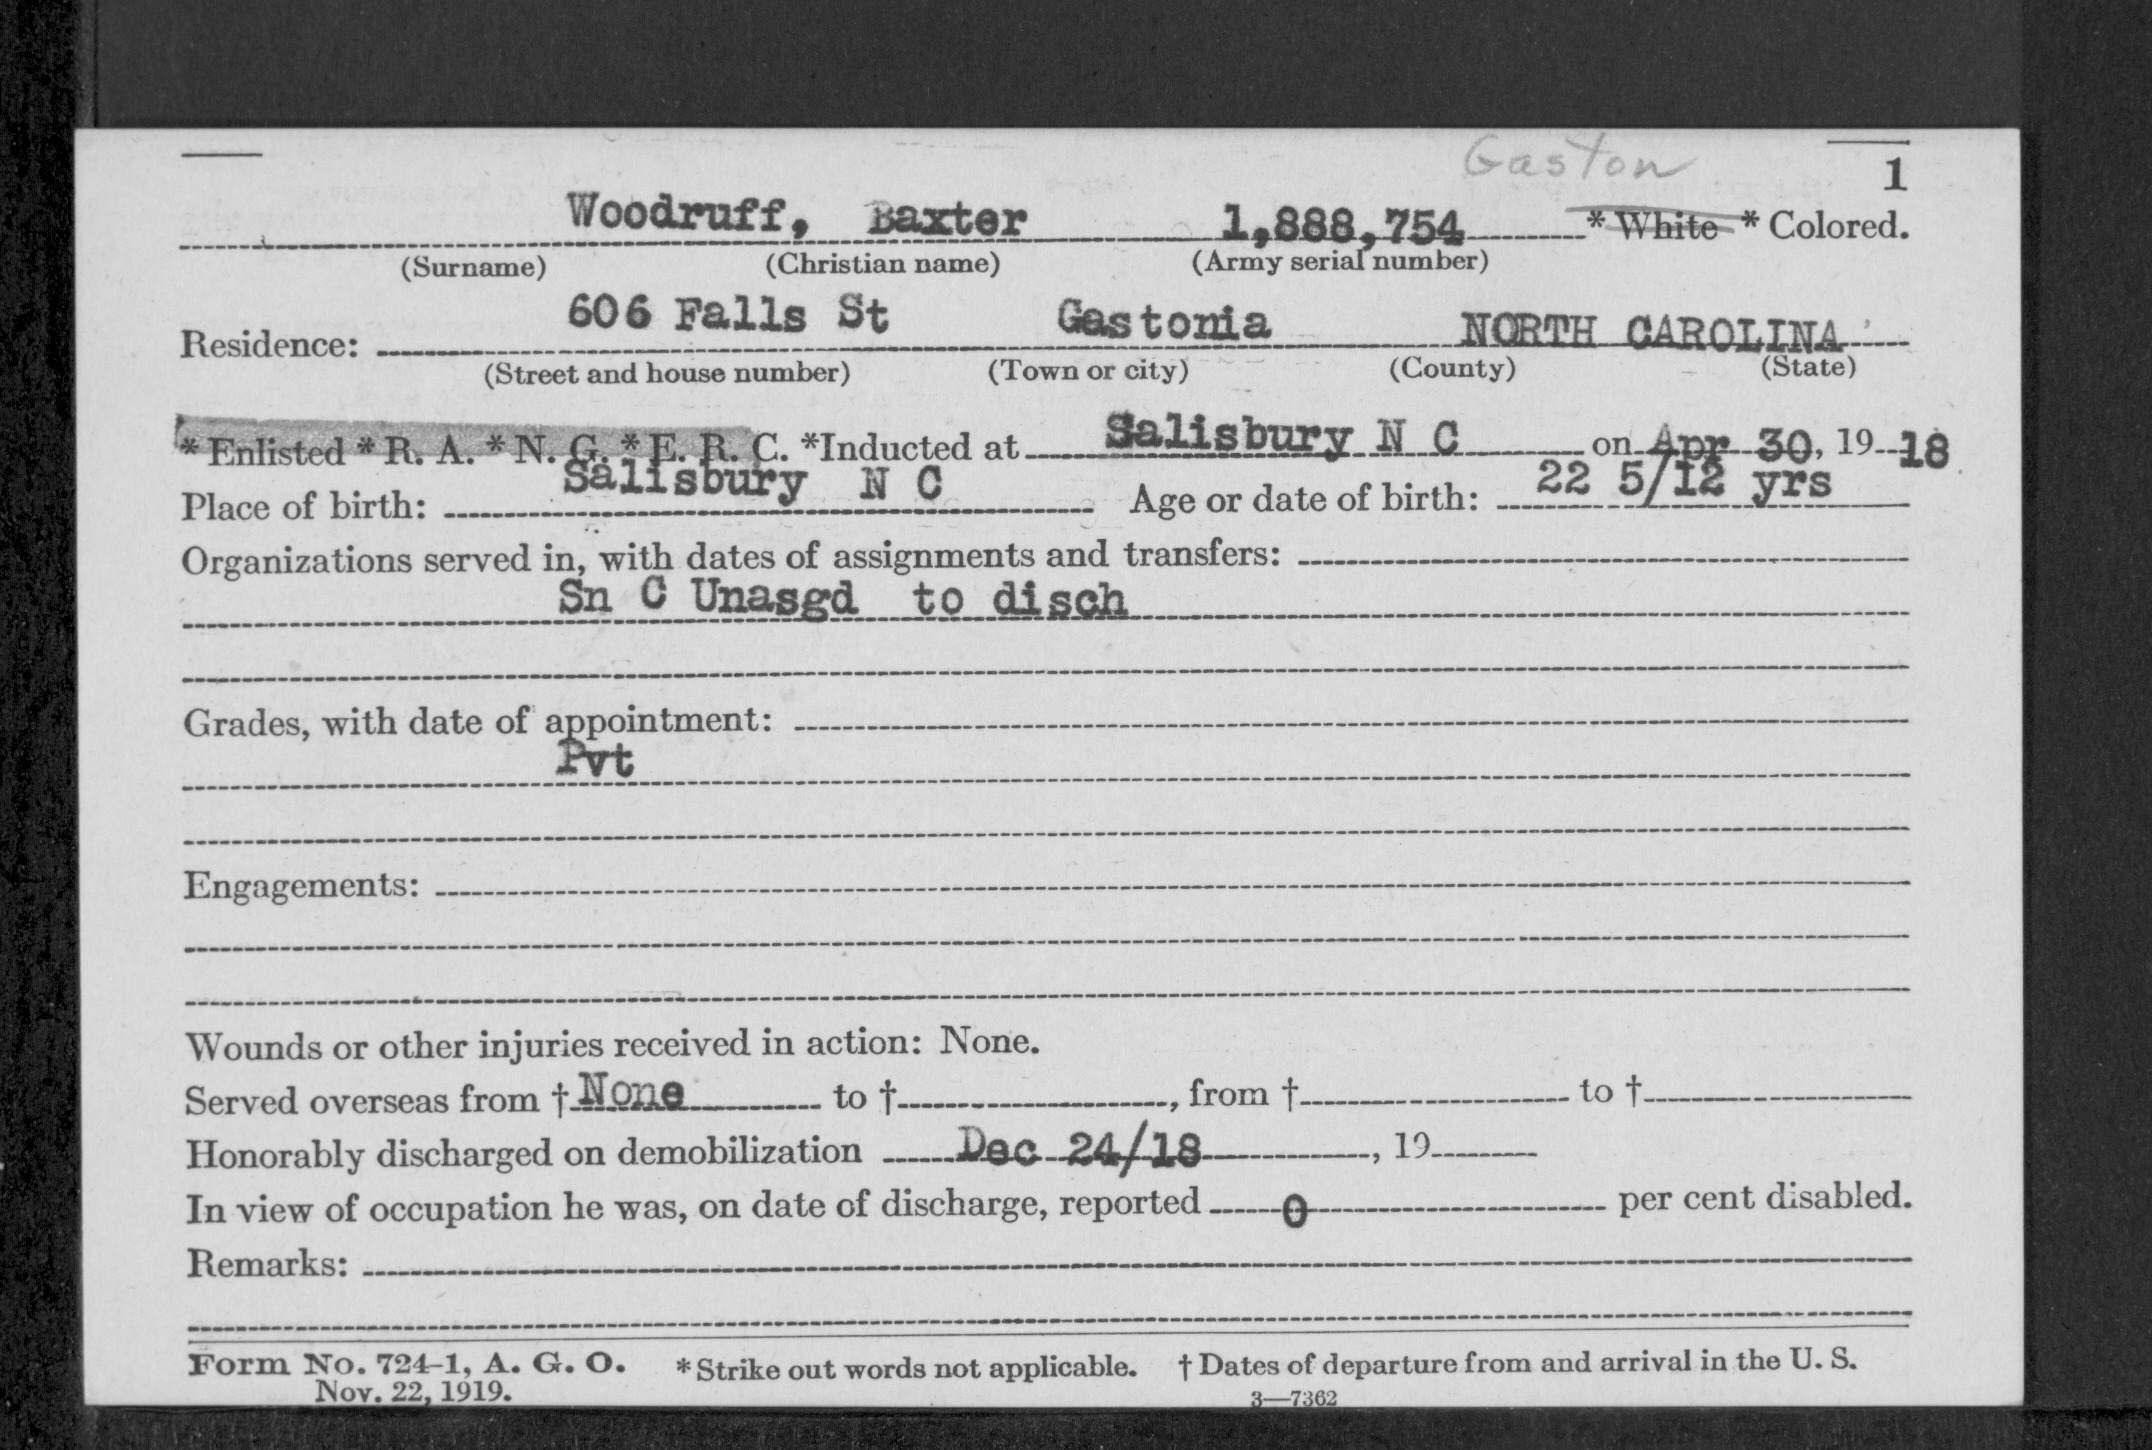 Gaston
1
Woodruff, Baxter 1,888,754 * White * Colored.
(Surname) (Christian name) (Army serial number)
606 Falls St Gastonia NORTH CAROLINA
Residence:
(Street and house number) (Town or city) (County) (State)
* Enlisted * R. A. * N. G. * E. R. C. *Inducted at Salisbury N C on Apr 30, 19 18
Place of birth: Salisbury N C Age or date of birth: 22 5/12 yrs
Organizations served in, with dates of assignments and transfers:
Sn C Unasgd to disch
Grades, with date of appointment:
Pvt
Engagements:
Wounds or other injuries received in action: None.
Served overseas from † None to †, from † to †
Honorably discharged on demobilization Dec 24/18, 19
In view of occupation he was, on date of discharge, reported 0 per cent disabled.
Remarks:
Form No. 724-1, A. G. O. * Strike out words not applicable. † Dates of departure from and arrival in the U. S.
Nov. 22, 1919. 3—7362